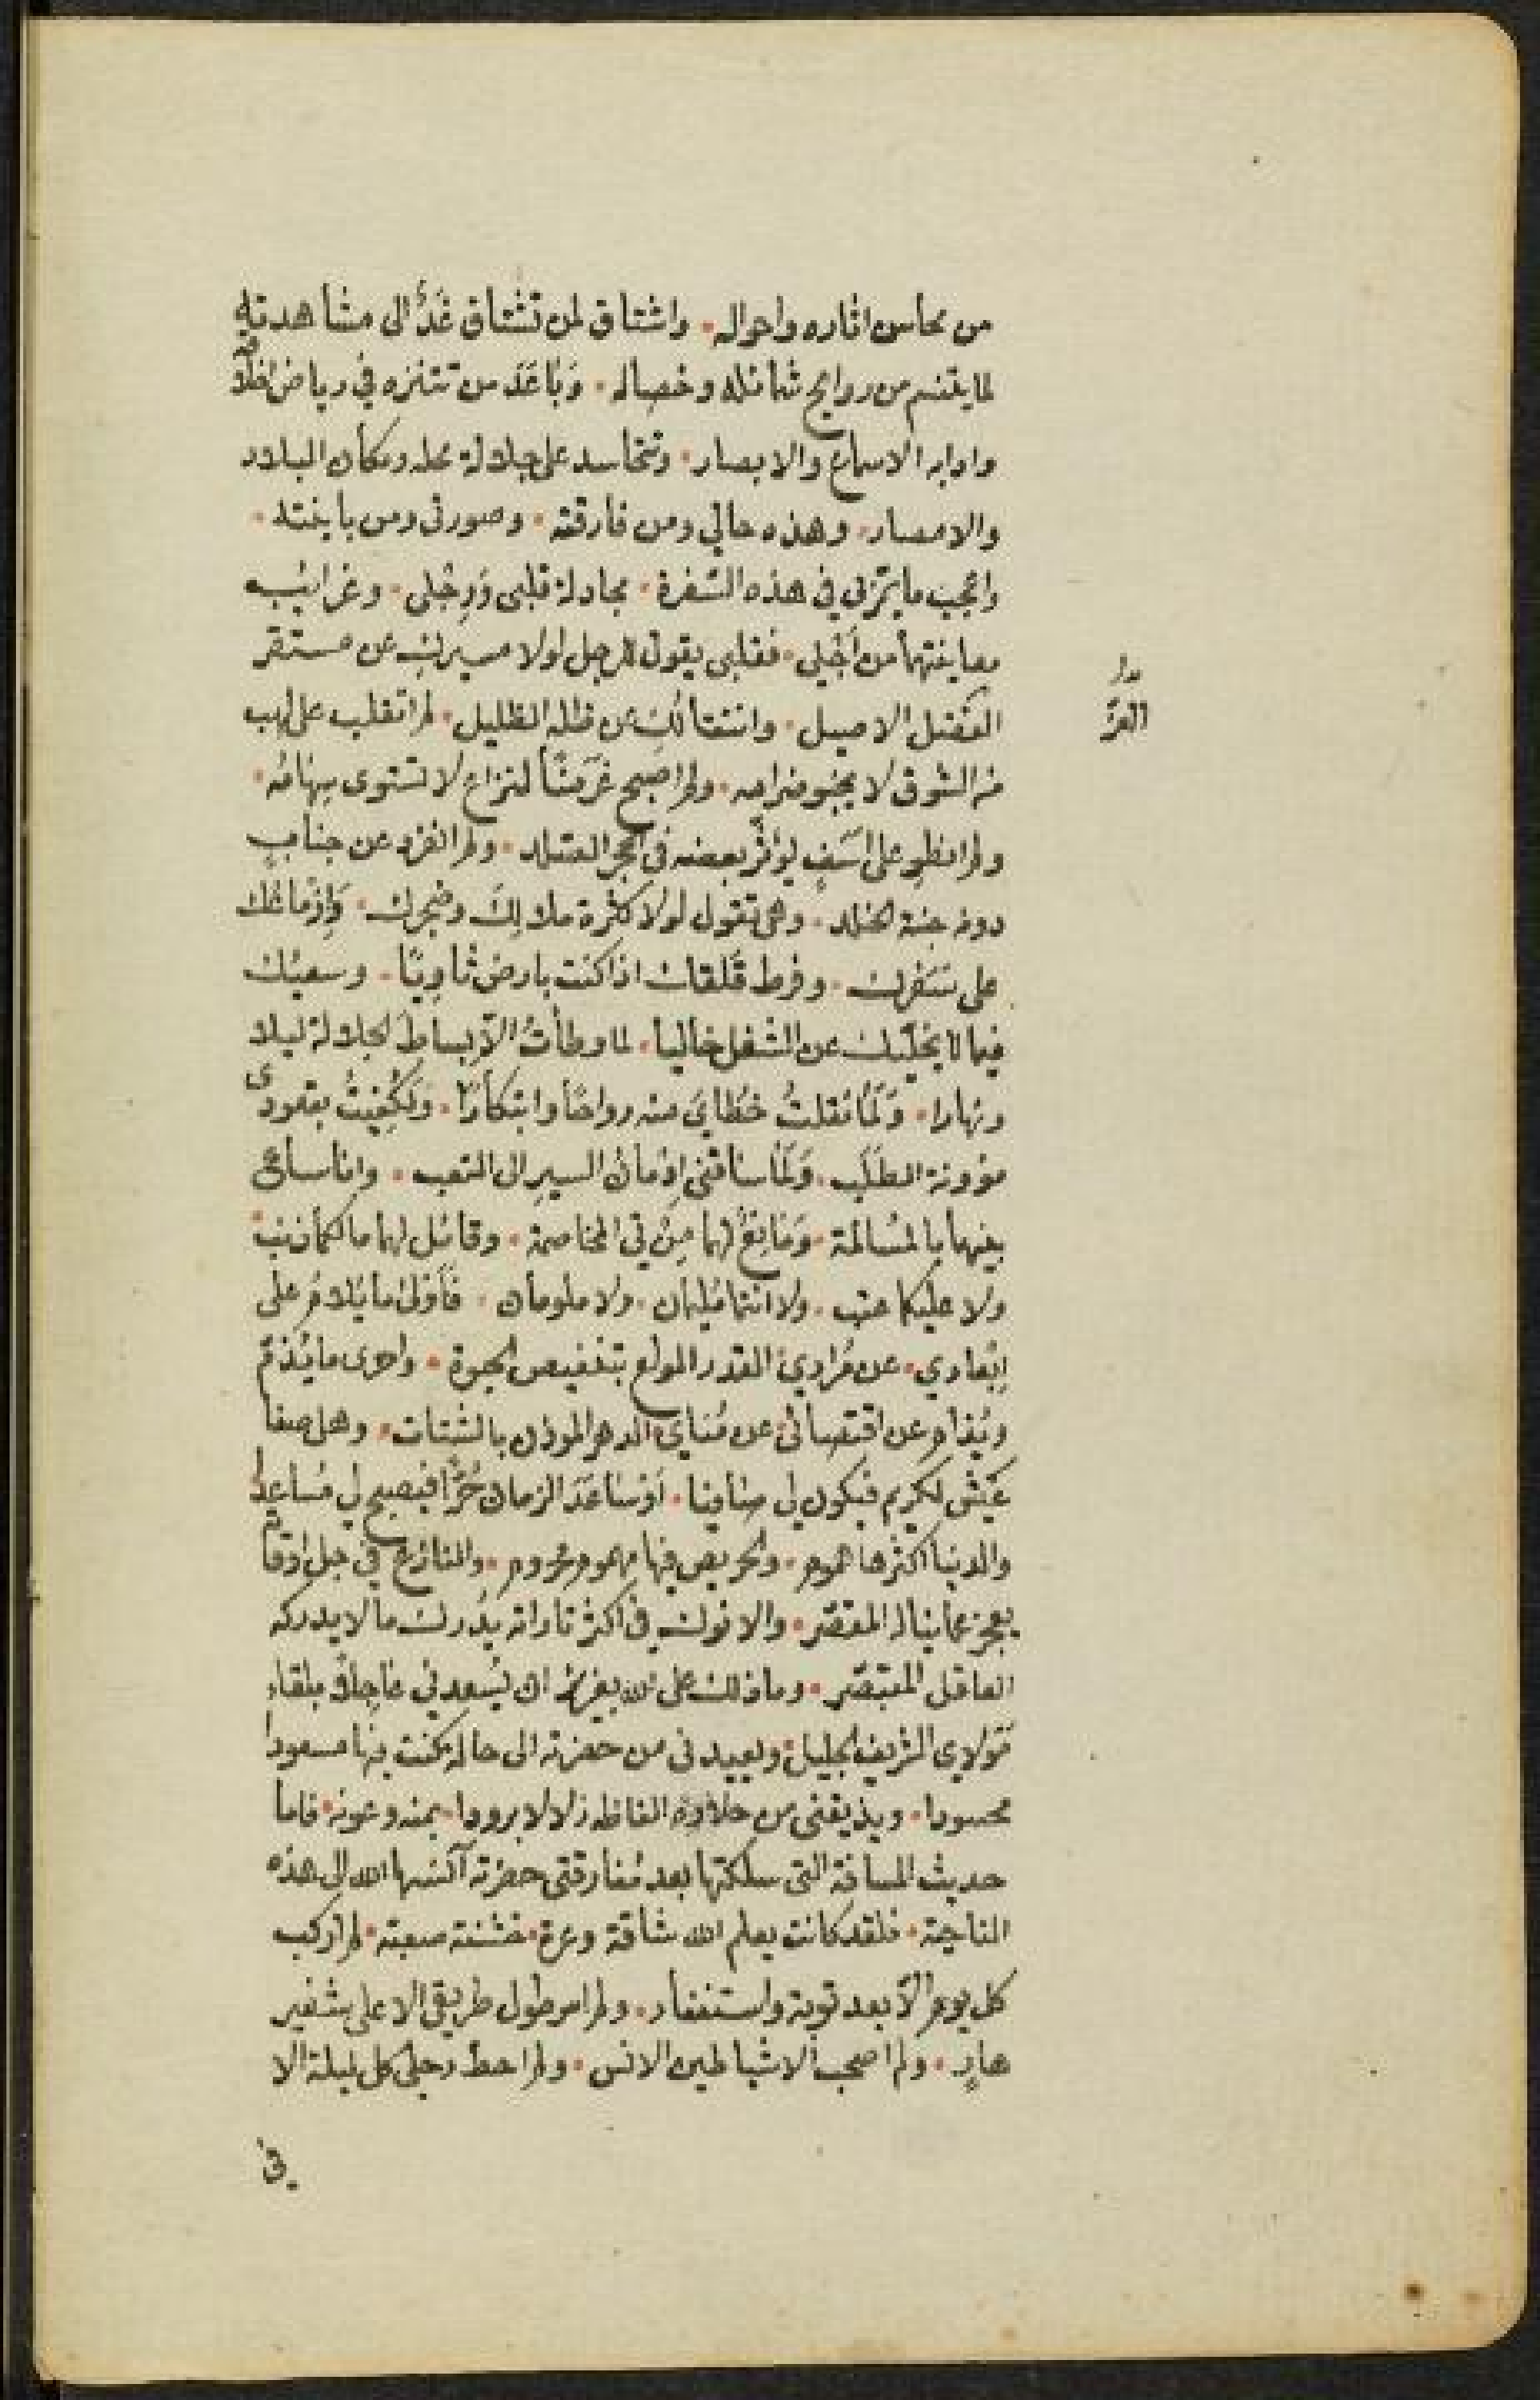 من محاسن اثاره واحواله • واشتاق لمن تشتاق غدًا الى مشاهدته
لما يتنسم من روايح شمائله وخصاله • وَبَاعَدَ من تتنزه في رياض اخلاقه
وادابه الاسماع والابصار • وتتحاسد على جلالة محله ومكانه البلاد
والامصار • وهذه حالي ومن فارقته • وصورتي ومن باينته •
واعجب ما يمرّ بي في هذه السفرة • مجادلة قلبي وَرِجْلي • وغرائب
معاينتهما من اَجْلي • فقلبي يقول للرجل لولا مسيرك عن مستقر
الفضل الاصيل • وانتقالك عن ظله الظليل • لم اتقلب على لهب
من الشوق لا يخبو ضرامه • ولم اصبح غَرَضًا لنزاع لا تشوى سهامه •
ولم انطوِ على اَسَفٍ يؤثر بعضه في الحجر الصلد • ولم انفرد عن جنابٍ
دونه جنة الخلد • وهي تقول لولا كثرة ملالِكَ وضجرك • وَاِدْمانك
على سَفَرك • وفرط قلقك اذا كنت بارض ثاويًا • وسعيك
فيما لا يخليك عن الشغل خاليا • لما وطأتُ الّا بساطَ الجلالة ليلا
ونهارا • وَلَمَا نقلتُ خُطَايَ منه رواحًا وابتكارًا • وَلَكُفِيتُ بقعودى
مؤونة الطَلَب • وَلَمَا ساقني اِدْمانُ السير الى التعب • وانا ساعٍ
بينهما بالمُسالمة • وَمَانِعٌ لهما مِنْ في المخاصمة • وقائل لهما ما لكما ذنب
ولا عليكما عتب • ولا انتما مُليمان • ولا ملومان • فَاَوْلى ما يُلام على
اِبْعادي • عن مُرادي • القدر المولع بتنغيص الحيوة • واحرى ما يُذَمّ
ويُذام عن اقتصائى عن مُناي الدهر الموذن بالشتات • وهل صفا
عَيْش لكريم فيكون لي صافيا • اَوْ سَاعَدَ الزمان حُرًّا فيصبح لي مُساعِدا
والدنيا اكثرها هموم • والحريص فيها مهموم محروم • والمنازع في جل اوقاته
يعجز عما يناله المقصّر • والانوك في اكثر تاراته يُدرك ما لا يدركه
العاقل المتبصّر • وما ذلك على الله بعزيز ان يُسعدني عاجِلاً بلقاء
مَوْلاي الشريف الجليل • ويعيدني من حضرته الى حالة كنت بها مسعودا
محسودا • ويذيقني من حلاوة الفاظه زلالا برودا • بمنه وعونه • فاما
حديث المسافة التي سلكتها بعد مُفارقتي حضرته آنسها الله الى هذه
الناحية • فلقد كانت يعلم الله شاقة وعرة • خشنة صعبة • لم اركب
كل يوم الّا بعد توبة واستغفار • ولم امر طول طريقي الا على شفير
هارٍ • ولم اصحب الا شياطين الانس • ولم احط رحلى كل ليلة الا
في
العزّ